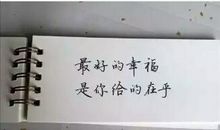 最好的幸福
是你给的在乎